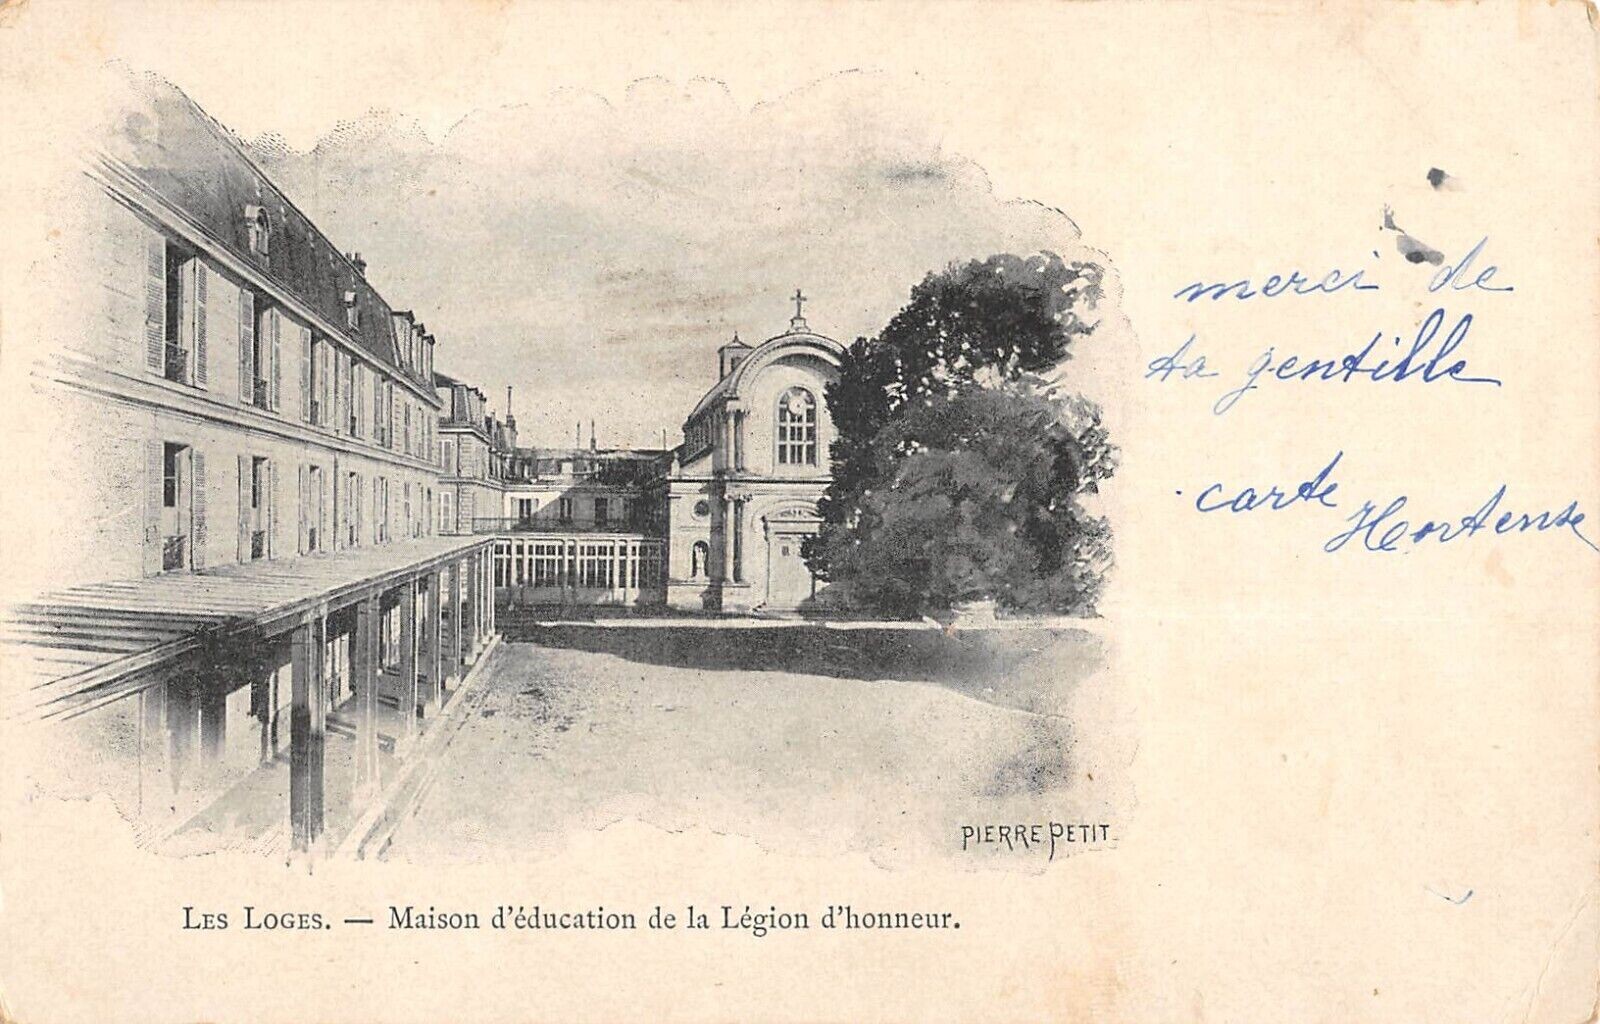 merci de
ta gentille
carte
Hortense
PIERRE PETIT
LES LOGES. — Maison d'éducation de la Légion d'honneur.